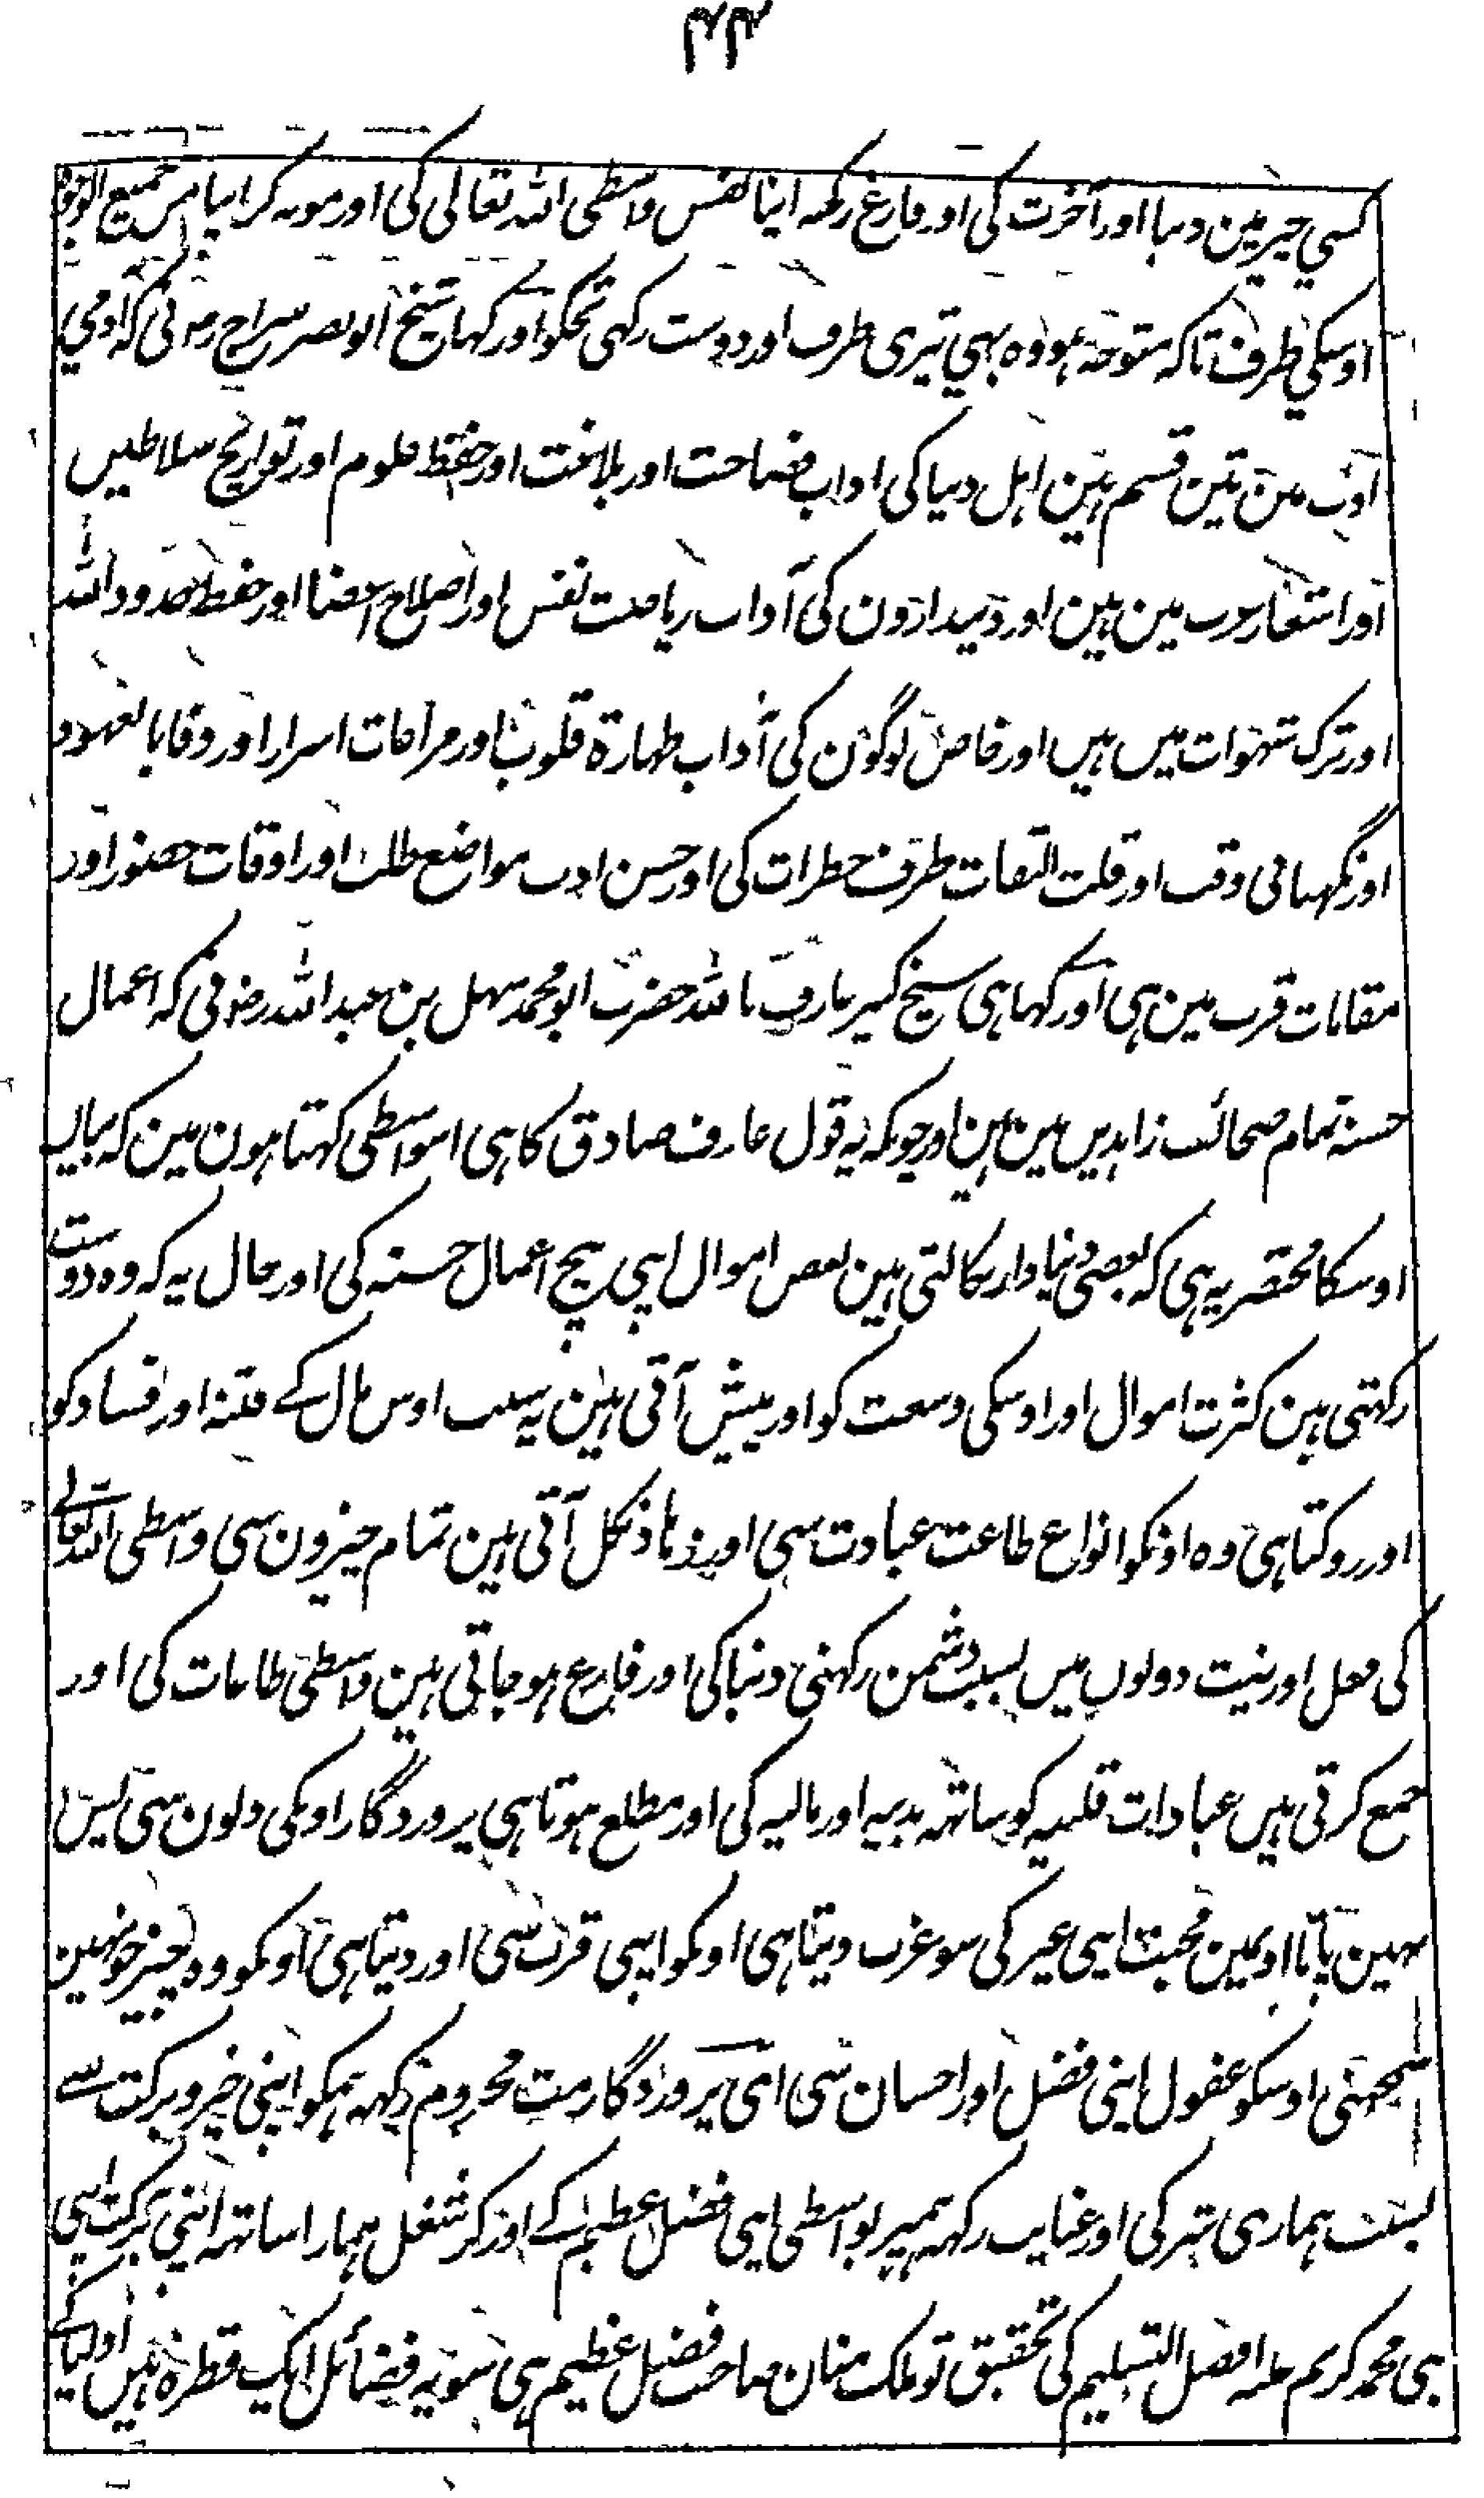 ۴۴
کسی چیز مین دنیا اور آخرت کی اور فارغ رکہہ اپنا نفس واسطی اللہ تعالی کی اور مونہہ کر اپنا من جمیع الوجوہ
اوسکی طرف تاکہ متوجہ ہو وہ بہی تیری طرف اور دوست رکہی تجکو اور کہا شیخ ابو نصر سراج رہ نی کہ آدمی
ادب مین تین قسم ہین اہل دنیا کی اداب فصاحت اور بلاغت اور حفظ علوم اور تواریخ سلاطین
اور اشعار عرب مین ہین اور دیندارون کی آداب ریاضت نفس اور اصلاح اعضا اور حفظ حدود اللہ
اور ترک شہوات میں ہیں اور خاص لوگون کی آداب طہارۃ قلوب اور مراعات اسرار اور وفا بالعہود
اور نگہبانی وقت اور قلت التفات طرف خطرات کی اور حسن ادب مواضع طلب اور اوقات حضور اور
مقامات قرب مین ہی اور کہا ہی شیخ کبیر عارف باللہ حضرت ابو محمد سہل بن عبد اللہ رضہ نی کہ اعمال
حسنہ تمام صحائف زاہدین مین ہین اور چونکہ یہ قول عارف صادق کا ہی اسواسطی کہتا ہون مین کہ بیان
اوسکا مختصر یہ ہی کہ بعضی دنیا دار نکالتی ہین بعض اموال اپنی بیچ اعمال حسنہ کی اور حال یہ کہ وہ دوست
رکہتی ہین کثرت اموال اور اوسکی وسعت کو اور پیش آتی ہین بہ سبب اوس مال کے فتنہ اور فساد کو
اور روکتا ہی وہ اونکو انواع طاعت عبادت سی اور زہاد نکل آتی ہین تمام چیزون سی واسطی اللہ تعالے
کی فعل اور نیت دونوں میں بسبب دشمن رکہنی دنیا کی اور فارغ ہو جاتی ہین واسطی طاعات کی اور
جمع کرتی ہیں عبادات قلبیہ کو ساتہہ بدنیہ اور مالیہ کی اور مطلع ہوتا ہی پروردگار اونکی دلون سی پس
نہین پاتا اونمین محبت اپنی غیر کی سو عزت دیتا ہی اونکو اپنی قرب سی اور دیتا ہی اونکو وہ چیز جو نہین
سمجہتی اوسکو عقول اپنی فضل اور احسان سی ای پروردگار مت محروم رکہہ ہمکو اپنی خیر و برکت سے
بسبب ہماری شر کی اور عنایت رکہہ ہمپر بواسطی اپنی فضل عظیم کے اور کر شغل ہمارا ساتہہ اپنی برکت نبی
محمد کریم علیہ افضل التسلیم کی تحقیق تو ملک منان صاحب فضل عظیم ہی سو یہ فضائل ایک قطرہ ہیں اولیا کے